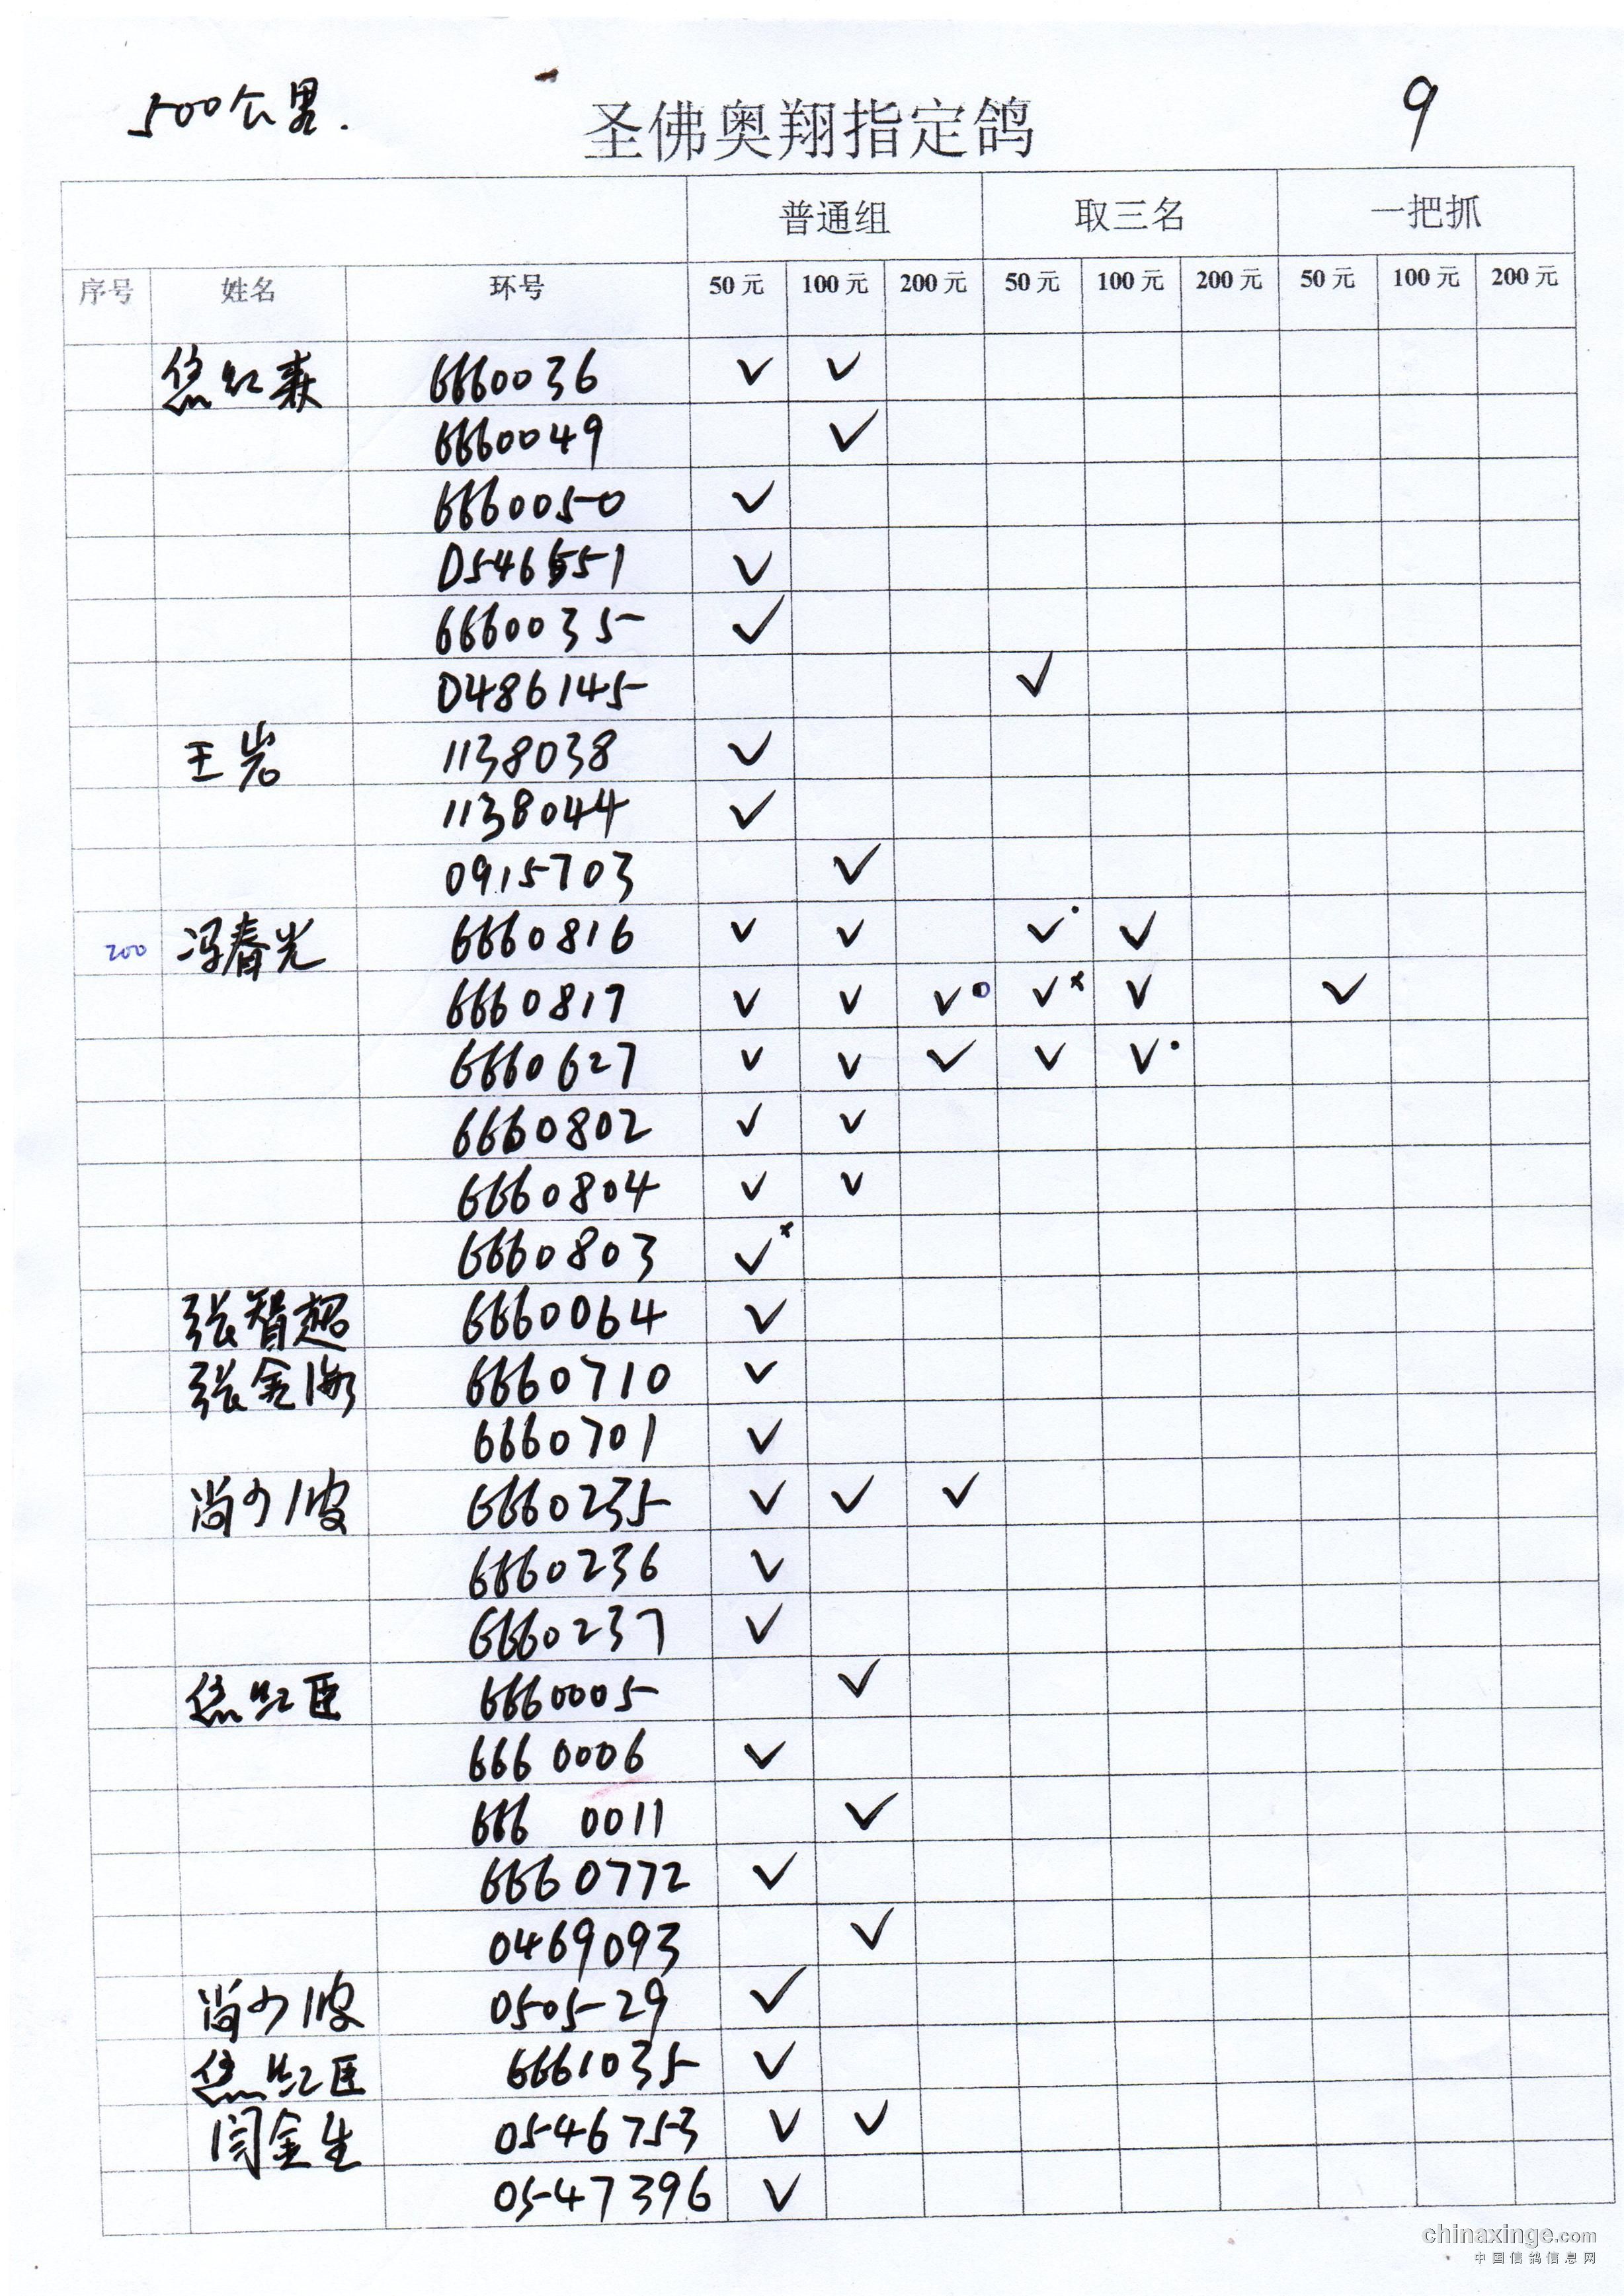 500公里. 圣佛奥翔指定鸽 9
普通组 取三名 一把抓
序号 姓名 环号 50元 100元 200元 50元 100元 200元 50元 100元 200元
焦红森 6660036 ✓ ✓
6660049 ✓
6660050 ✓
0546551 ✓
6660035 ✓
0486145 ✓
王岩 1138038 ✓
1138044 ✓
0915703 ✓
200 冯春光 6660816 ✓ ✓ ✓ ✓
6660817 ✓ ✓ ✓ ✓ ✓ ✓
6660627 ✓ ✓ ✓ ✓ ✓
6660802 ✓ ✓
6660804 ✓ ✓
6660803 ✓
张智超 6660064 ✓
张金海 6660710 ✓
6660701 ✓
尚少波 6660235 ✓ ✓ ✓
6660236 ✓
6660237 ✓
焦红臣 6660005 ✓
6660006 ✓
666 0011 ✓
6660772 ✓
0469093 ✓
尚少波 050529 ✓
焦红臣 6661035 ✓
闫金生 0546753 ✓ ✓
0547396 ✓
chinaxinge.com
中国信鸽信息网